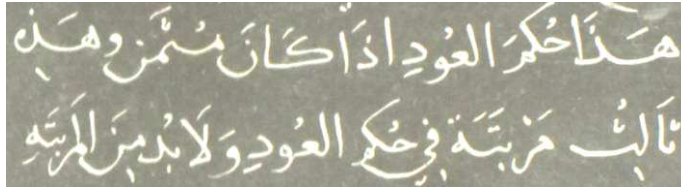 هَذَا حُكمَ العُودِ اذَا كَانَ مُثمَّن وهَذِهِ
ثَالِثُ مَرْتَبَة فِي حُكمِ العُودِ وَلَا بُد مِنَ المَرتبَهِ